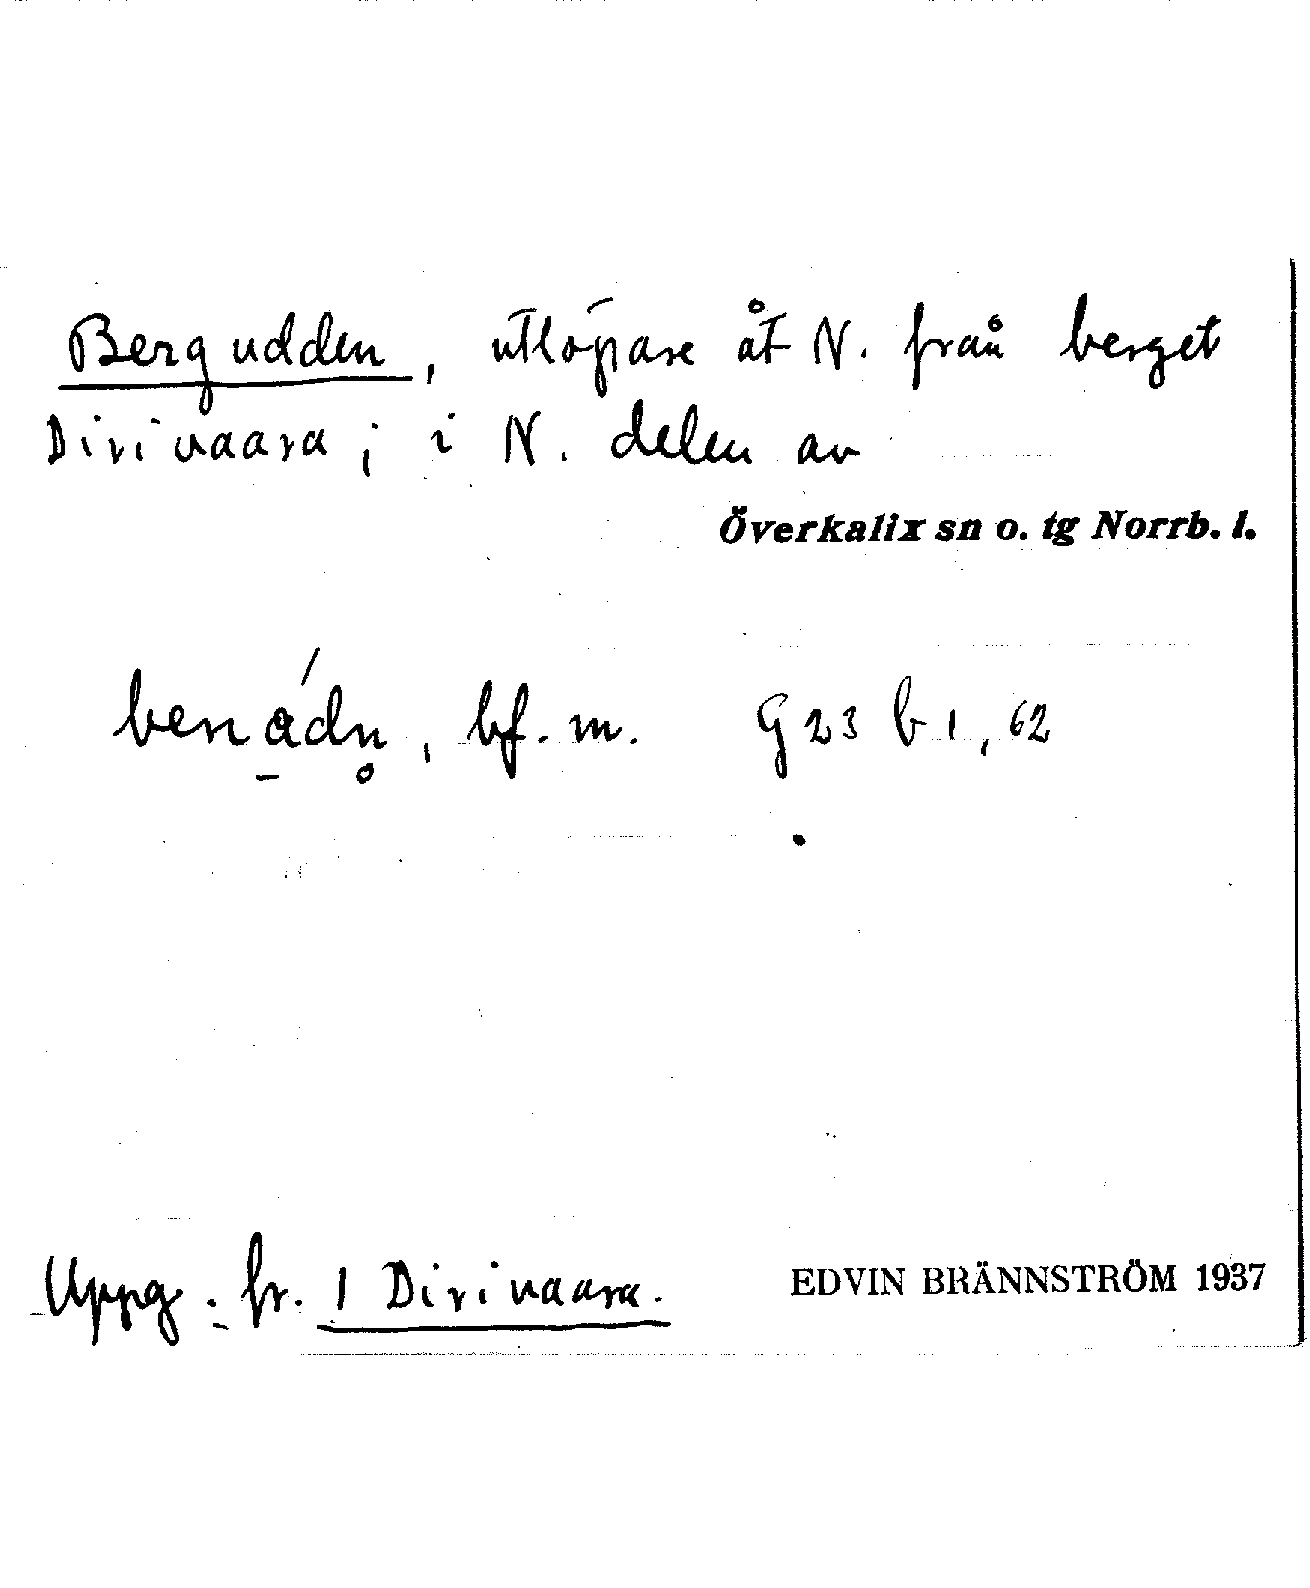 Bergudden, utlöpare åt N. från berget
Dirivaara; i N. delen av
Överkalix sn o. tg Norrb. l.
bf. m. G 23 b 1, 62
Uppg. fr. 1 Dirivaara.
EDVIN BRÄNNSTRÖM 1937